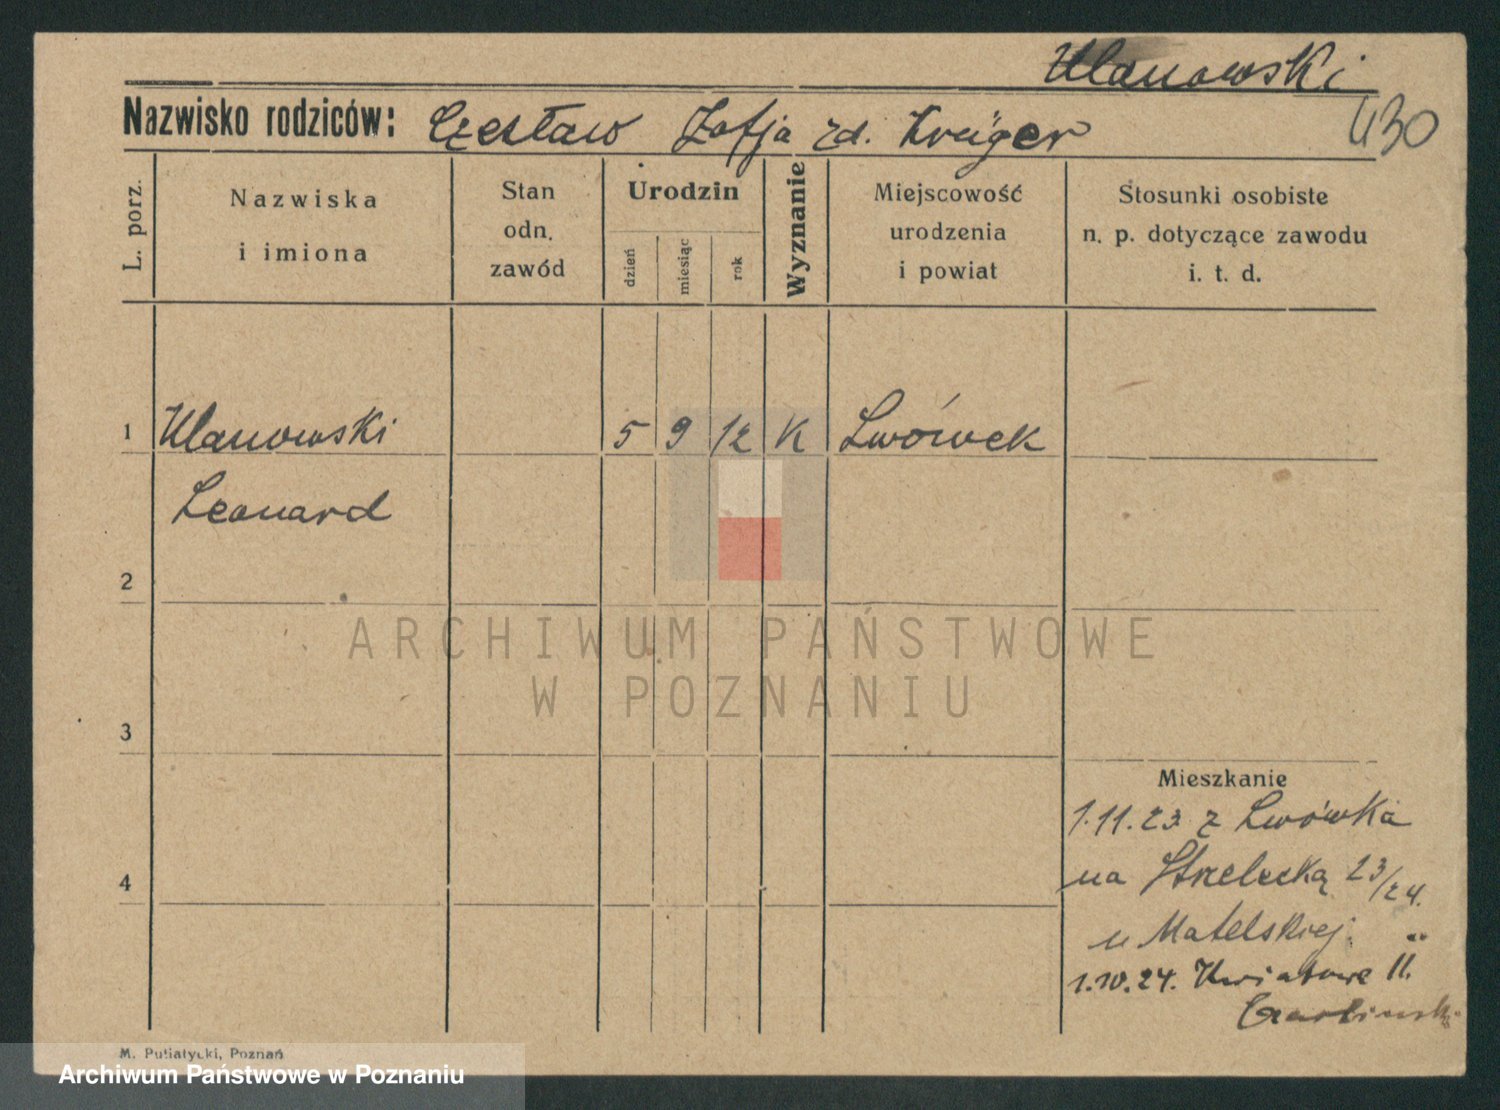 Ulanowski
Nazwisko rodziców: Czesław Zofja zd. Kreiger
430
L. porz.
Nazwiska
i imiona
Stan
odn.
zawód
Urodzin
dzień
miesiąc
rok
Wyznanie
Miejscowość
urodzenia
i powiat
Stosunki osobiste
n. p. dotyczące zawodu
i. t. d.
1 Ulanowski 5 9 12 K Lwówek
Leonard
2
ARCHIWUM PAŃSTWOWE
W POZNANIU
3
Mieszkanie
1.11.23 z Lwówka
4
na Strzelecką 23/24.
u Matelskiej.
1.10.24. Kwiatowe 11.
M. Putiatycki, Poznań
Archiwum Państwowe w Poznaniu